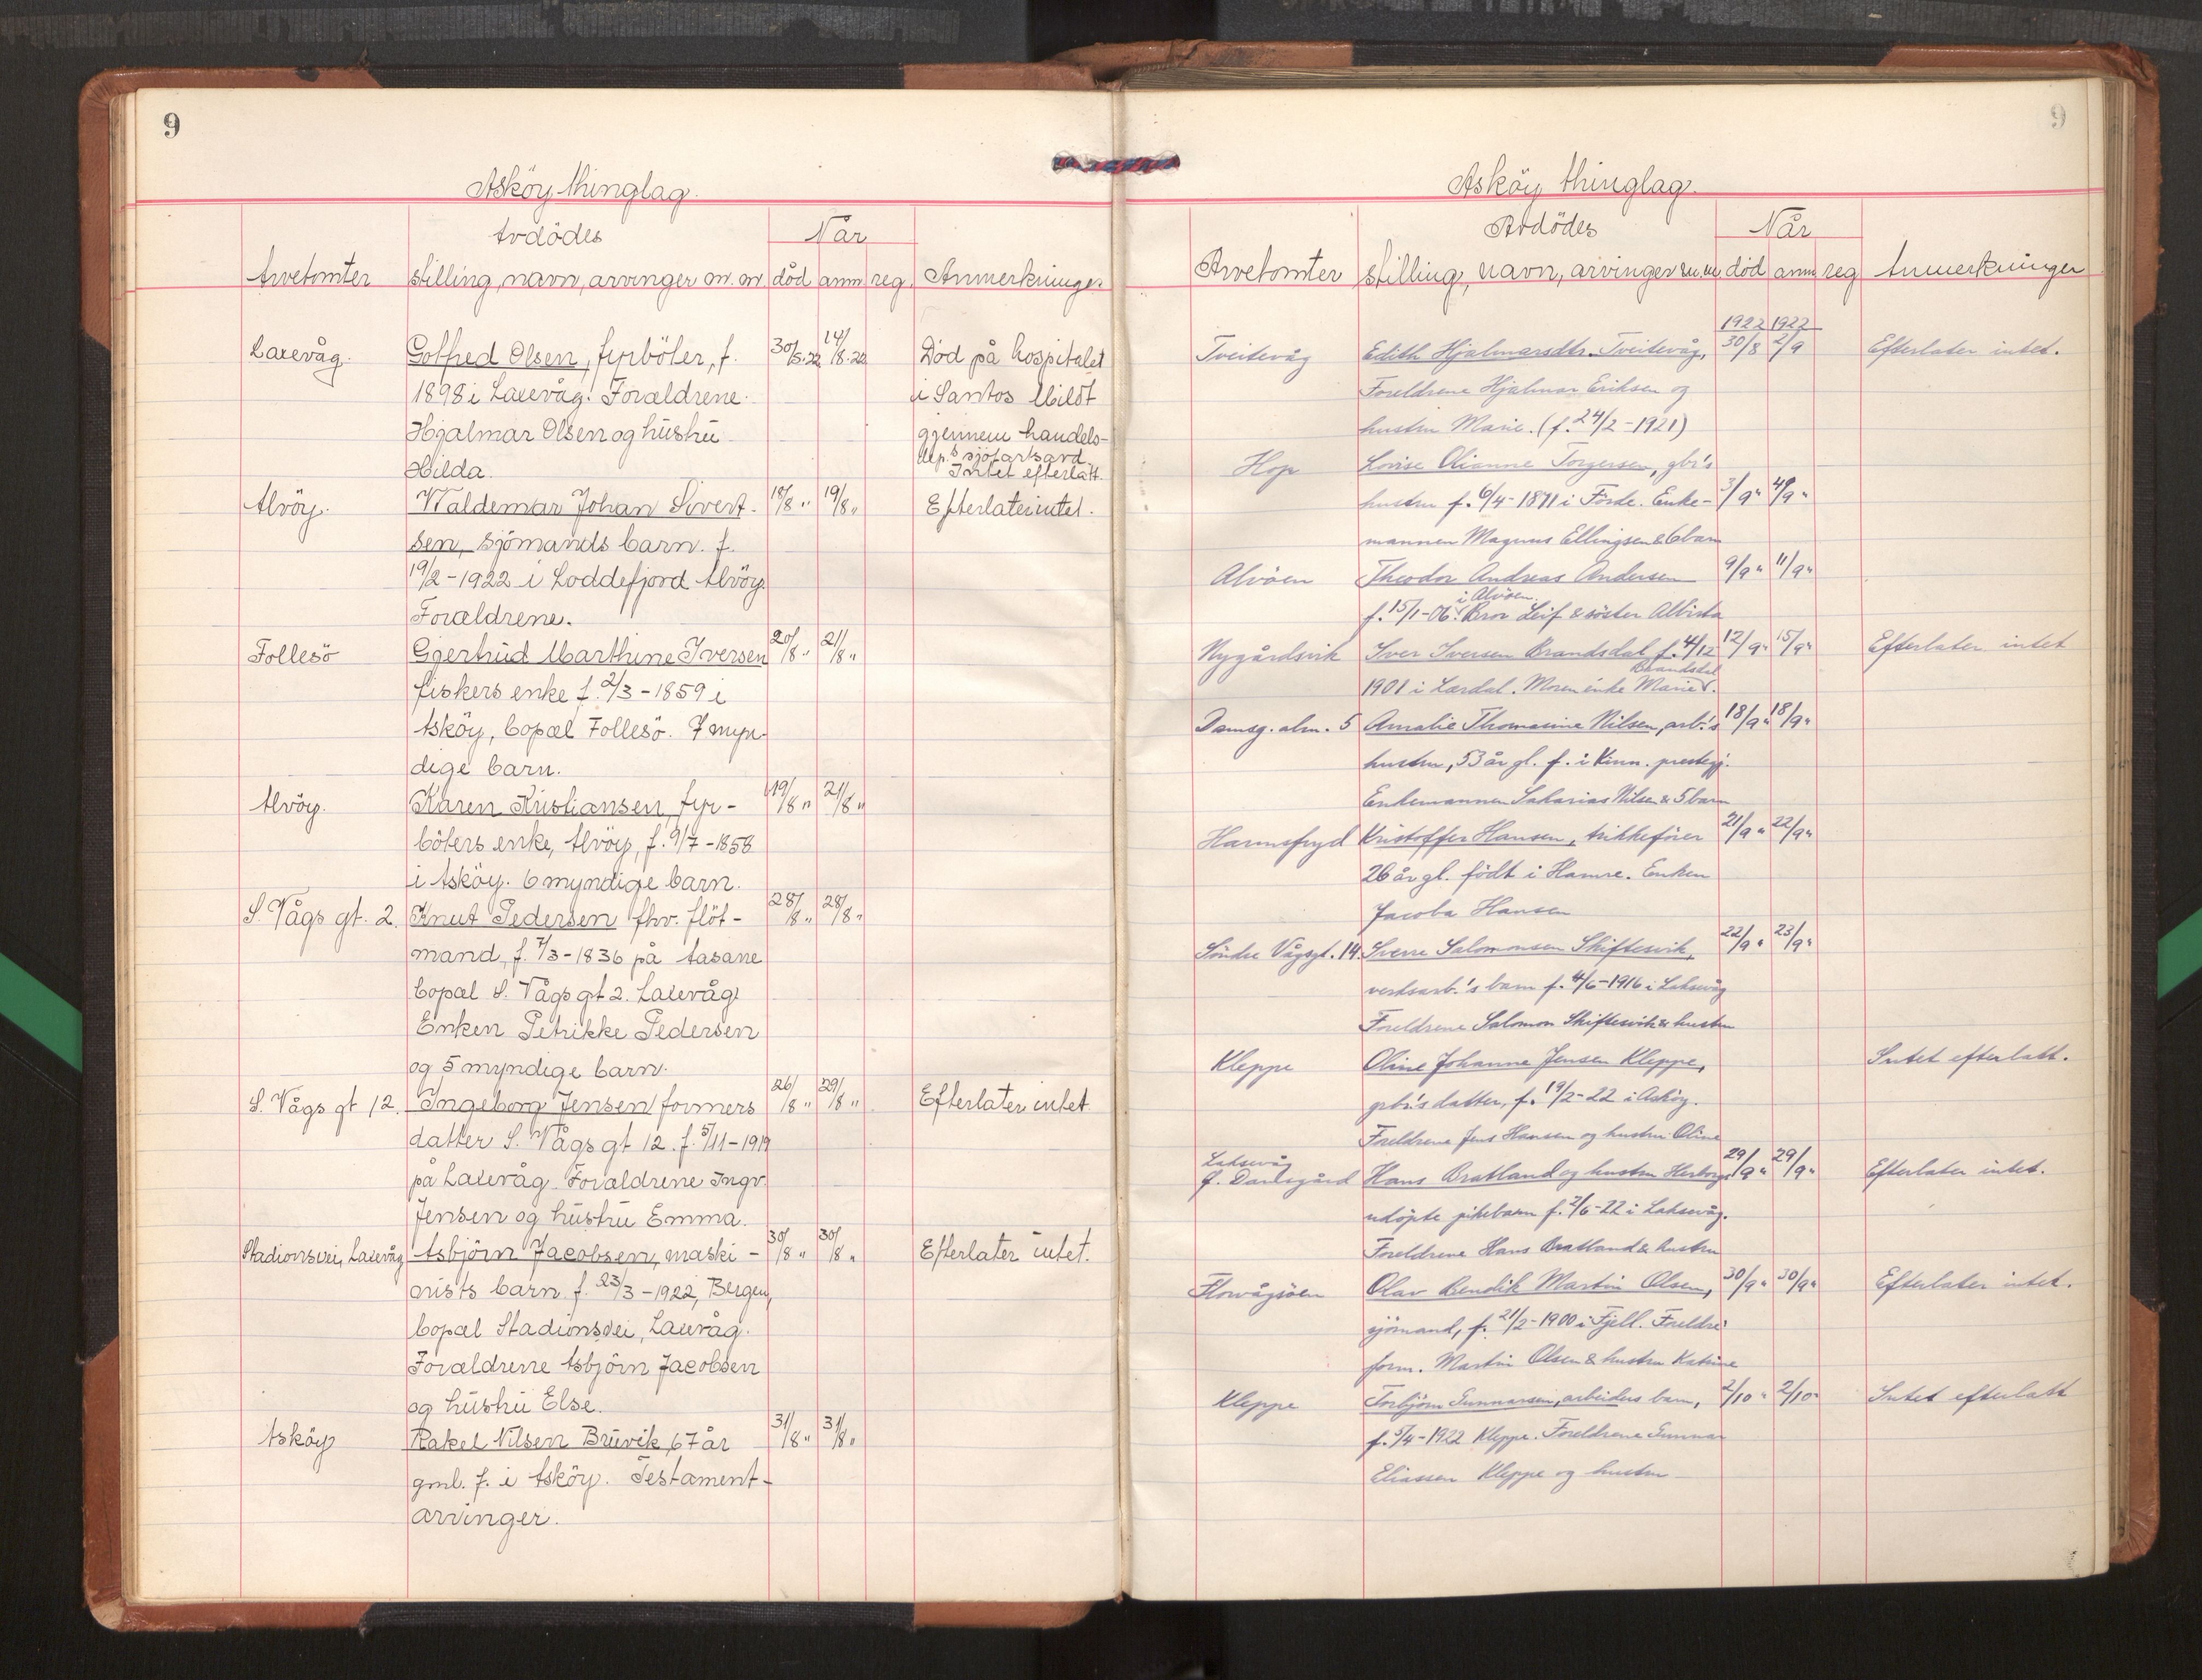 9
Asköy thinglag.
Avdödes
Når
Arvetomter stilling, navn, arvinger m. m. död anm reg. Anmerkninger
Laxevåg. Golfred Olsen, fyrböter, f. 30/5.22 14/8.22 Död på hospitalet
1898 i Laxevåg. Forældrene i Santos Mildt
Hjalmar Olsen og hustru gjennem handels-
Hilda. dep.s sjöfartsavd.
Intet efterlatt.
Alvöy. Waldemar Johan Sivert- 18/8 " 19/8 " Efterlater intet.
sen, sjömands barn. f.
19/2-1922 i Loddefjord Alvöy.
Forældrene.
Follesö Gjertrud Marthine Iversen 20/8 " 21/8 "
fiskers enke f. 2/3-1859 i
Asköy, bopæl Follesö. 7 myn-
dige barn.
Alvöy. Karen Kristiansen, fyr- 19/8 " 21/8 "
böters enke, Alvöy, f. 9/7-1858
i Asköy. 6 myndige barn.
S. Vågs gt. 2. Knut Pedersen fhv. flöt- 28/8 " 28/8 "
mand, f. 7/3-1836 på Aasane
bopæl S. Vågs gt 2. Laxevåg.
Enken Petrikke Pedersen
og 5 myndige barn.
S. Vågs gt 12. Ingeborg Jensen formers 26/8 " 29/8 " Efterlater intet
datter S. Vågs gt 12. f. 5/11-1919
på Laxevåg. Forældrene Ingv.
Jensen og hustru Emma.
Stadionsvei, Laxevåg Asbjörn Jacobsen, maski- 30/8 " 30/8 " Efterlater intet.
nists barn f. 23/3-1922, Bergen,
bopæl Stadionsvei, Laxevåg.
Forældrene Asbjörn Jacobsen
og hustru Else.
Asköy Rakel Nilsen Bruvik, 67 år 31/8 " 31/8 "
gml. f. i Asköy. Testament-
arvinger.
9
Asköy thinglag.
Avdödes
Når
Arvetomter stilling, navn, arvinger m.m död anm reg Anmerkninger
1922 1922
Tveitevåg Edith Hjalmarsdtr. Tveitevåg, 30/8 2/9 Efterlater intet.
Foreldrene Hjalmar Eriksen og
hustru Marie. (f. 24/2-1921)
Hop Lovise Olianne Torgersen, gbr's
hustru f. 6/4-1871 i Förde. Enke- 3/9 " 4/9 "
mannen Magnus Ellingsen & 6 barn
Alvöen Theodor Andreas Andersen 9/9 " 11/9 "
i Alvöen.
f. 15/1-06. Bror Leif & söster Albirta
Nygårdsvik Iver Iversen Brandsdal f. 4/12 12/9 " 15/9 " Efterlater intet
Brandsdal
1901 i Lærdal. Moren enke Marie.
Damsg. alm. 5 Amalie Thomasine Nilsen, arb.'s 18/9 " 18/9 "
hustru, 53 år gl. f. i Kinn. prestegj.
Enkemannen Sakarias Nilsen & 5 barn
Harmsfryd Kristoffer Hansen, trikkeförer 21/9 " 22/9 "
26 år gl. födt i Hamre. Enken
Jacoba Hansen
Söndre Vågsgt. 14. Sverre Salomonsen Skiftesvik, 22/9 " 23/9 "
verksarb.'s barn f. 4/6-1916 i Laksevåg
Foreldrene Salomon Skiftesvik & hustru
Kleppe Oline Johanne Jensen Kleppe, Intet efterlatt.
grbr.s datter, f. 19/2-22 i Asköy.
Foreldrene Jens Hansen og hustru Oline
Laksevåg
f. Damsgård Hans Bratland og hustru Herborgs 29/9 " 29/9 " Efterlater intet.
udöpte pikebarn f. 2/6-22 i Laksevåg.
Foreldrene Hans Bratland & hustru
Florvågsöen Olav Bendik Martin Olsen, 30/9 " 30/9 " Efterlater intet.
sjömand, f. 21/2-1900 i Fjell. Foreldre:
form. Martin Olsen & hustru Katrine
Kleppe Torbjörn Gunnarsen, arbeiders barn, 2/10 " 2/10 " Intet efterlatt
f. 5/4-1922 Kleppe. Foreldrene Gunnar
Eliassen Kleppe og hustru